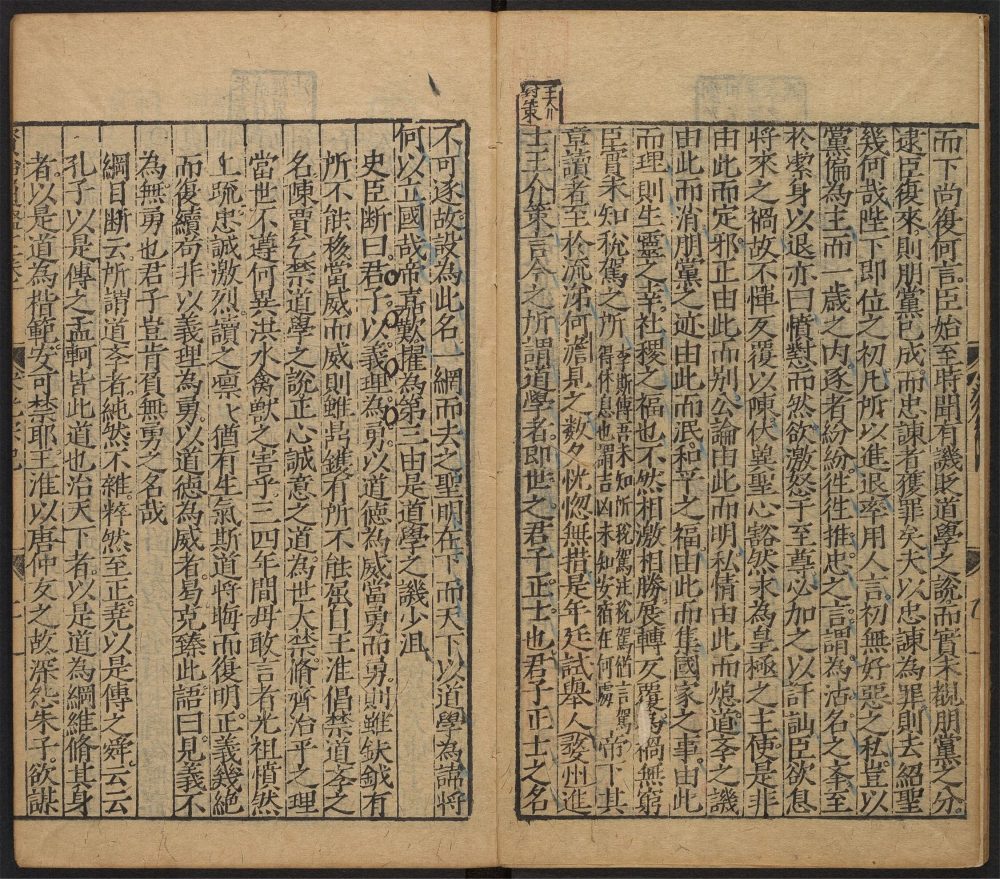 而下尚復何言臣始至時聞有譏貶道學之說而實未覩朋黨之分
逮臣復來則朋黨已成而忠諫者獲罪矣夫以忠諫為罪則去紹聖
幾何哉陛下即位之初凡所以進退率用人言初無好惡之私豈以
黨偏為主而一歲之內逐者紛紛徃徃推忠之言謂為沽名之李至
於潔身以退亦曰憤懟而然欲激怒于至尊必加之以訐訕臣欲息
將來之禍故不憚反覆以陳伏兾聖心豁然永為皇極之主使是非
由此而定邪正由此而别公論由此而明私情由此而熄道李之譏
由此而消朋黨之迹由此而泯和平之福由此而集國家之事由此
而理則生靈之幸社稷之福也不然相激相勝展轉反覆為禍無窮
臣實未知稅駕之所李斯傳吾未知所稅駕註稅駕猶言駕得休息也謂吉凶未知安宿在何處帝下其
章讀者至於流涕何澹見之數夕恍惚無措是年廷試舉人婺州進
王介對策
士王介策言今之所謂道學者即世之君子正士也君子正士之名
不可逐故設為此名一網而去之聖明在下而天下以道學為諱將
何以立國哉帝嘉歎擢為第三由是道學之譏少沮
史臣断曰君子以義理為勇以道德為威當勇而勇則雖鈇鉞有
所不能移當威而威則雖鼎鑊有所不能屈曰王淮倡禁道李之
名陳賈乞禁道學之說正心誠意之道為世大禁脩齊治平之理
當世不遵何異洪水禽獸之害乎三四年間毋敢言者光祖憤然
上疏忠誠激烈讀之凛凛猶有生氣斯道將晦而復明正義幾絶
而後續苟非以義理為勇以道德為威者易克臻此語曰見義不
為無勇也君子豈肯負無勇之名哉
綱目断云所謂道李者純然不雜粹然至正堯以是傳之舜云云
孔子以是傳之孟軻皆此道也治天下者以是道為綱維脩其身
者以是道為楷範安可禁耶王淮以唐仲友之故深怨朱子欲謀